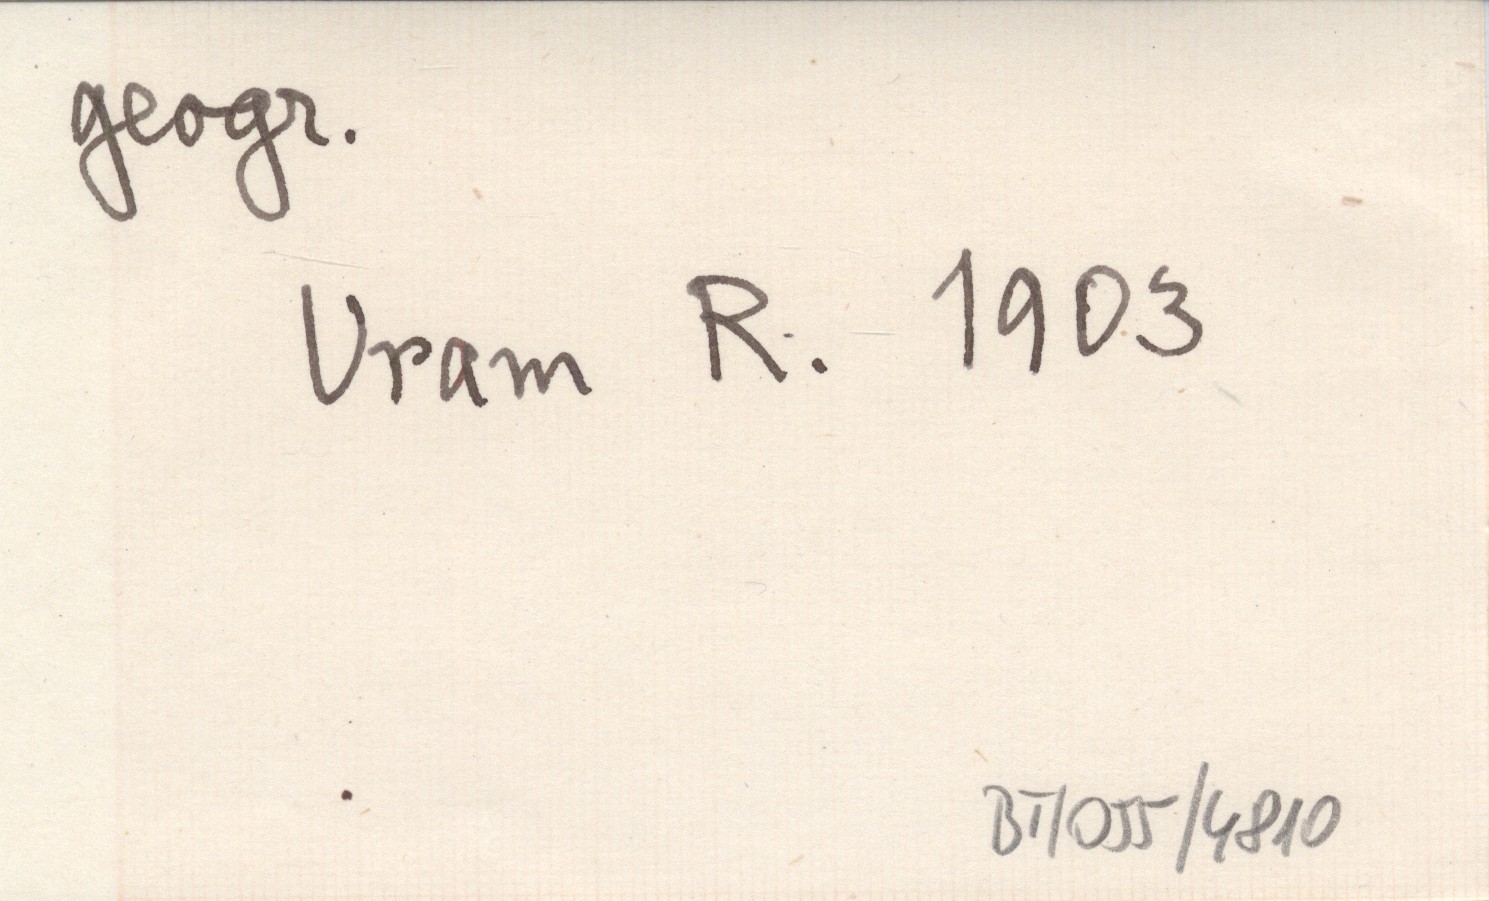 geogr.
Vram R. 1903
BT/055/4810